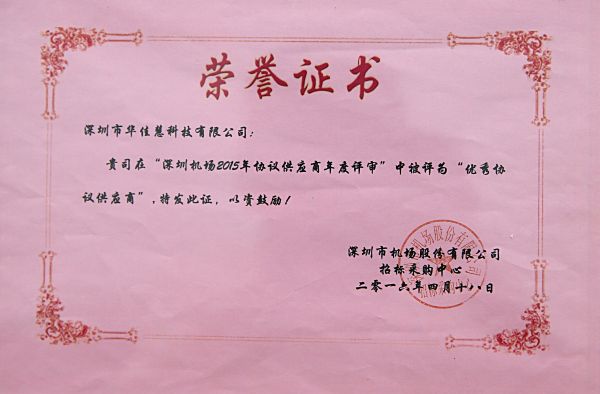 荣誉证书
深圳市华佳慧科技有限公司：
贵司在“深圳机场2015年协议供应商年度评审”中被评为“优秀协
议供应商”，特发此证，以资鼓励！
深圳市机场股份有限公司
招标采购中心
二零一六年四月十八日